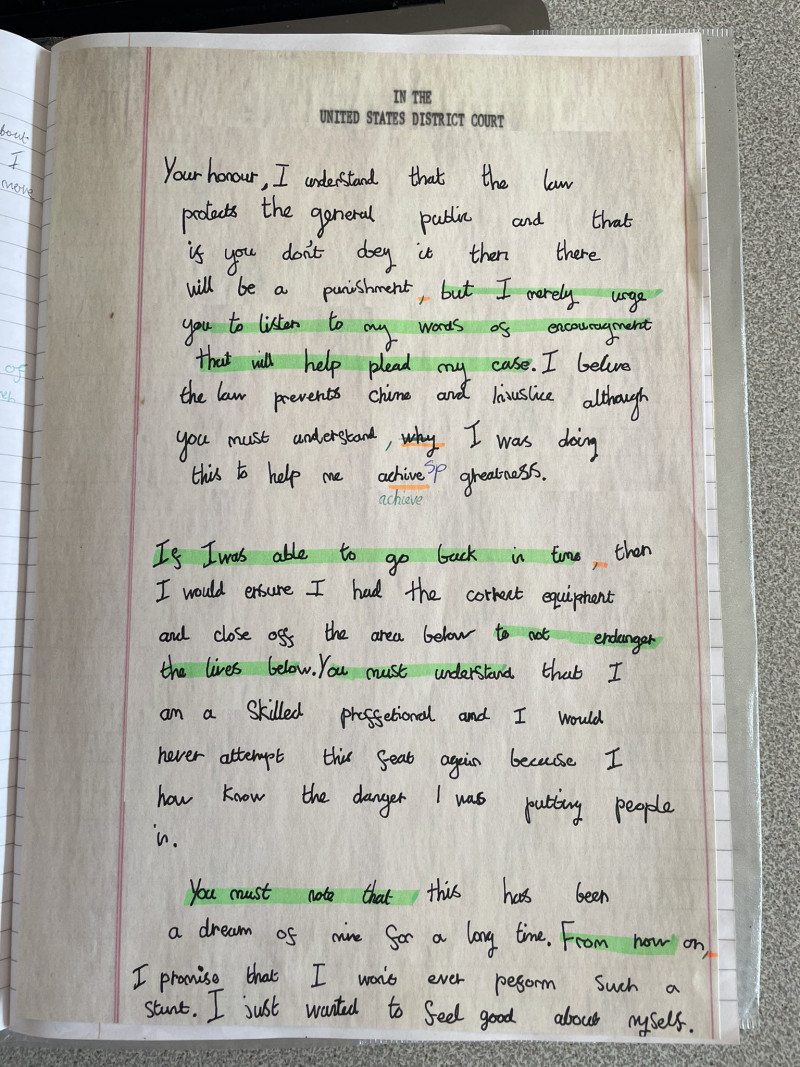 IN THE
UNITED STATES DISTRICT COURT
Your honour, I understand that the law
protects the general public and that
if you don't obey it then there
will be a punishment, but I merely urge
you to listen to my words of encouragment
that will help plead my case. I belive
the law prevents crime and Injustice although
you must understand, why I was doing
this to help me achive sp greatness.
achieve
If I was able to go back in time, then
I would ensure I had the correct equipment
and close off the area below to not endanger
the lives below. You must understand that I
am a skilled proffetional and I would
never attempt this feat again because I
now know the danger I was putting people
in.
You must note that this has been
a dream of mine for a long time. From now on,
I promise that I won't ever peform such a
stunt. I just wanted to feel good about myself.
bout
I
of